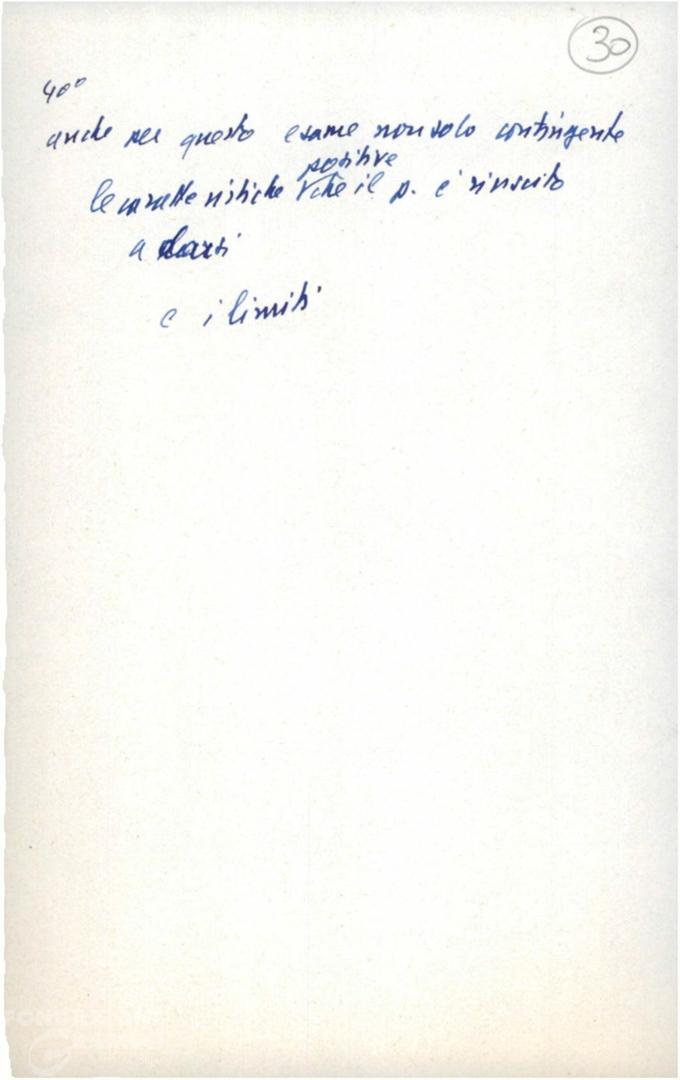 30
40°
anche per questo esame non solo contingente
le caratteristiche positive che il p. è riuscito
a darsi
e i limiti
FONDAZIONE